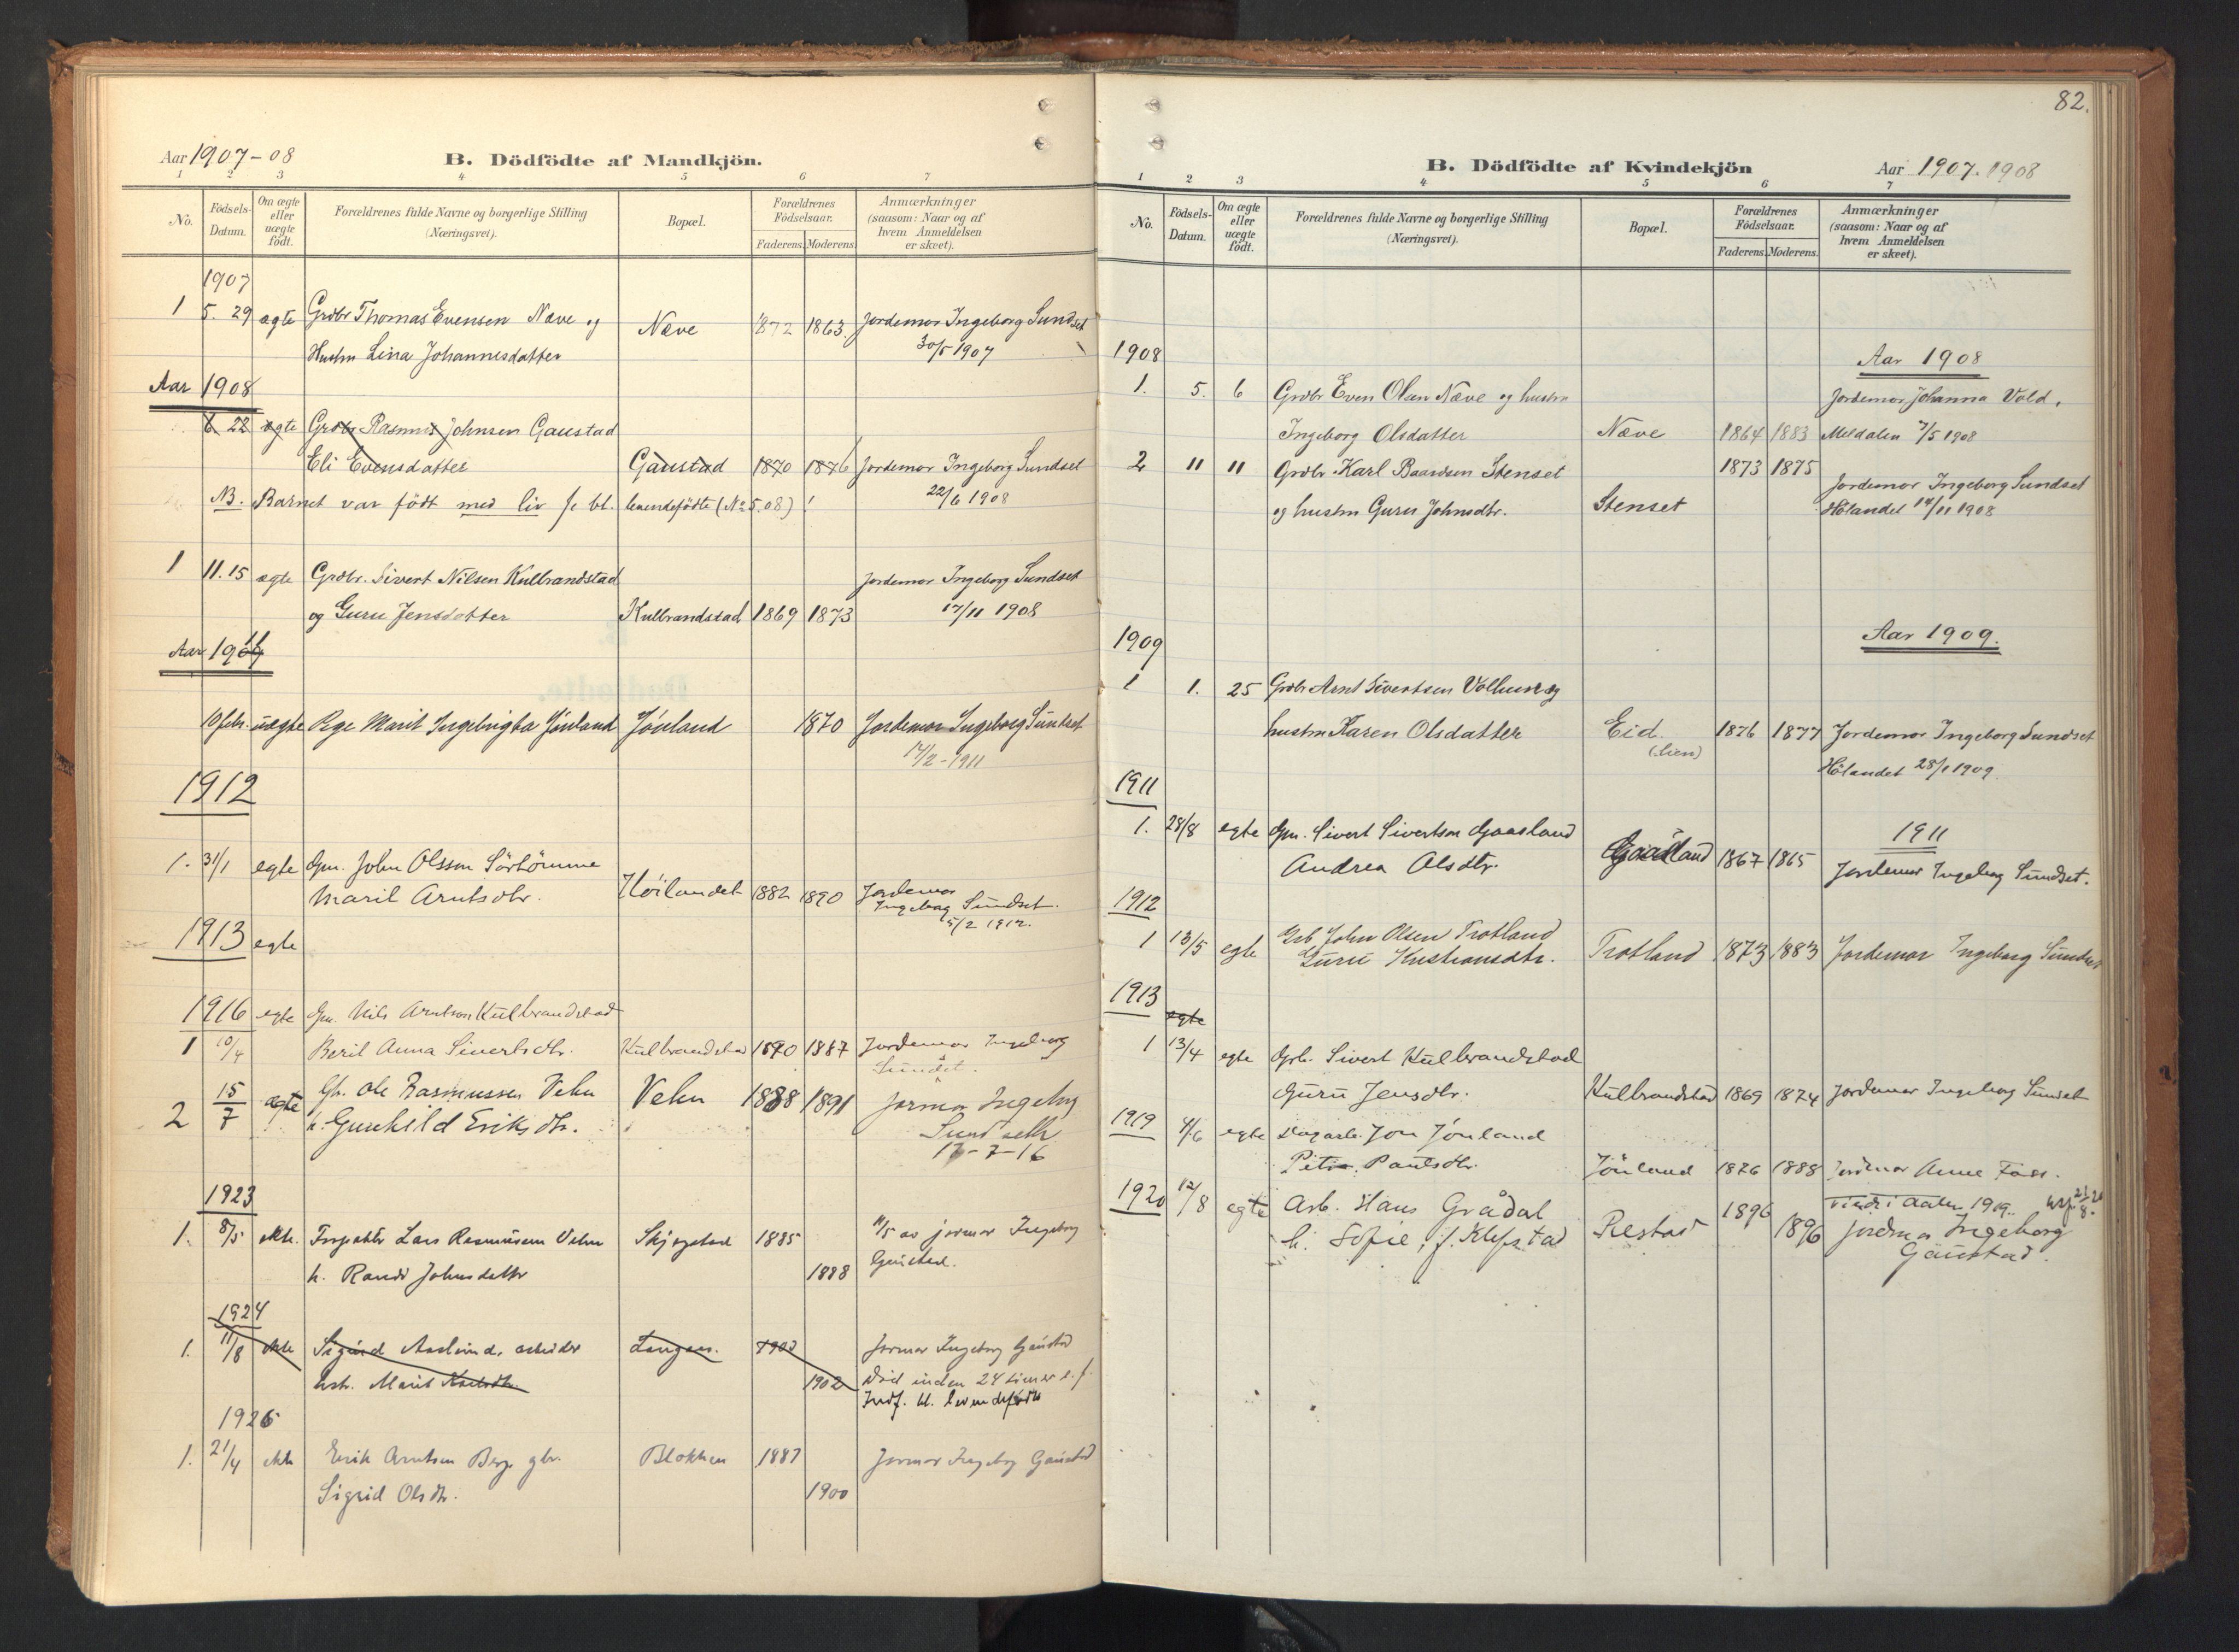 Aar 1907-08
B. Dödfödte af Mandkjön.
1 2 3 4 5 6 7
No. Födsels-Datum. Om ægte eller uægte födt. Forældrenes fulde Navne og borgerlige Stilling (Næringsvei). Bopæl. Forældrenes Födselsaar. Faderens. Moderens. Anmærkninger (saasom: Naar og af hvem Anmeldelsen er skeet).
1907
1 5. 29 ægte Grdbr Thomas Evensen Næve og Næve 1872 1863 Jordemor Ingeborg Sundset
Hustru Lina Johannesdatter 30/5 1907
Aar 1908
6. 22 ægte Grdbr Rasmus Johnsen Gaustad
Eli Evensdatter Gaustad 1870 1876 Jordemor Ingeborg Sundset
22/6 1908
NB. Barnet var födt med liv se bl. levendefödte (No 5. 08)!
1 11. 15 ægte Grdbr. Sivert Nilsen Kulbrandstad Jordemor Ingeborg Sundset
og Guru Jensdatter Kulbrandstad 1869 1873 17/11 1908
Aar 1911
10 febr. uægte Pige Marit Ingebrigtsd. Jönland Jönland 1870 Jordemor Ingeborg Sundset
14/2 - 1911
1912
1. 31/1 egte Gm. John Olsson Sörtömme
Marit Arntsdtr. Höilandet 1882 1890 Jordemor
Ingeborg Sundset.
5/2 1912.
1913 egte
1916 egte Gm. Nils Arntson Kulbrandstad
1 10/4 Beril Anna Sivertsdtr. Kulbrandstad 1870 1887 Jordemor Ingeborg
Sundset.
2 15/7 ægte Gbr. Ole Rasmussen Vehn Vehn 1888 1891 Jormor Ingeborg
h. Gunhild Eriksdtr. Sundseth
17-7-16
1923
1. 8/5 ekte. Lars Rasmussen Vehn Skjegstad 1885 11/5 av jormor Ingeborg
h. Randi Johnsdatter 1888 Gaustad.
1924
1. 11/8 ekte Sigurd Aaslund, arbeider Langaas. 1900 Jormor Ingeborg Gaustad
hstr. Marit 1902 Död inden 24 timer e. f.
Indf. bl. levendefödte
1926
1. 21/4 ekte Erik Arntsen Berg gbr. Blokken 1887 Jormor Ingeborg Gaustad
Sigrid Olsdtr. 1900
82.
B. Dödfödte af Kvindekjön
Aar 1907. 1908
1 2 3 4 5 6 7
No. Födsels-Datum. Om ægte eller uægte födt. Forældrenes fulde Navne og borgerlige Stilling (Næringsvei). Bopæl. Forældrenes Födselsaar. Faderens. Moderens. Anmærkninger (saasom: Naar og af hvem Anmeldelsen er skeet).
1908 Aar 1908
1. 5. 6 Grdbr Even Olsen Næve og hustru Jordemor Johanna Vold,
Ingeborg Olsdatter Næve 1864 1883 Meldalen 7/5 1908
2 11 11 Grdbr. Karl Baardsen Stenset 1873 1875 Jordemor Ingeborg Sundset
og hustru Guru Johnsdtr. Stenset Hölandet 14/11 1908
1909 Aar 1909.
1 1. 25 Grdbr Arnt Sivertsen Volhus og
hustru Karen Olsdatter Eid. 1876 1877 Jordemor Ingeborg Sundset
(Lien) Hölandet 28/1 1909
1911 1911
1. 28/8 egte Gm. Sivert Sivertson Gaasland
Andrea Olsdtr. Gaasland 1867 1865 Jordemor Ingeborg Sundset.
1912
1 13/5 egte Grb John Olsen Trotland
Guru Kristiansdtr. Trotland 1873 1883 Jordemor Ingeborg Sundset
1913
egte
1 13/4 egte Grb. Sivert Kulbrandstad
Guru Jensdtr. Kulbrandstad 1869 1874 Jordemor Ingeborg Sundset
1919 4/6 egte Jon Jönland
Paulsdtr. Jönland 1876 1888 Jordmor Anne Foss.
Aalen 1919.
1920 12/8 egte Arb. Hans Grådal 1896
h. Sofie, f. Klefstad Restad 1896 Jordmor Ingeborg
Gaustad.